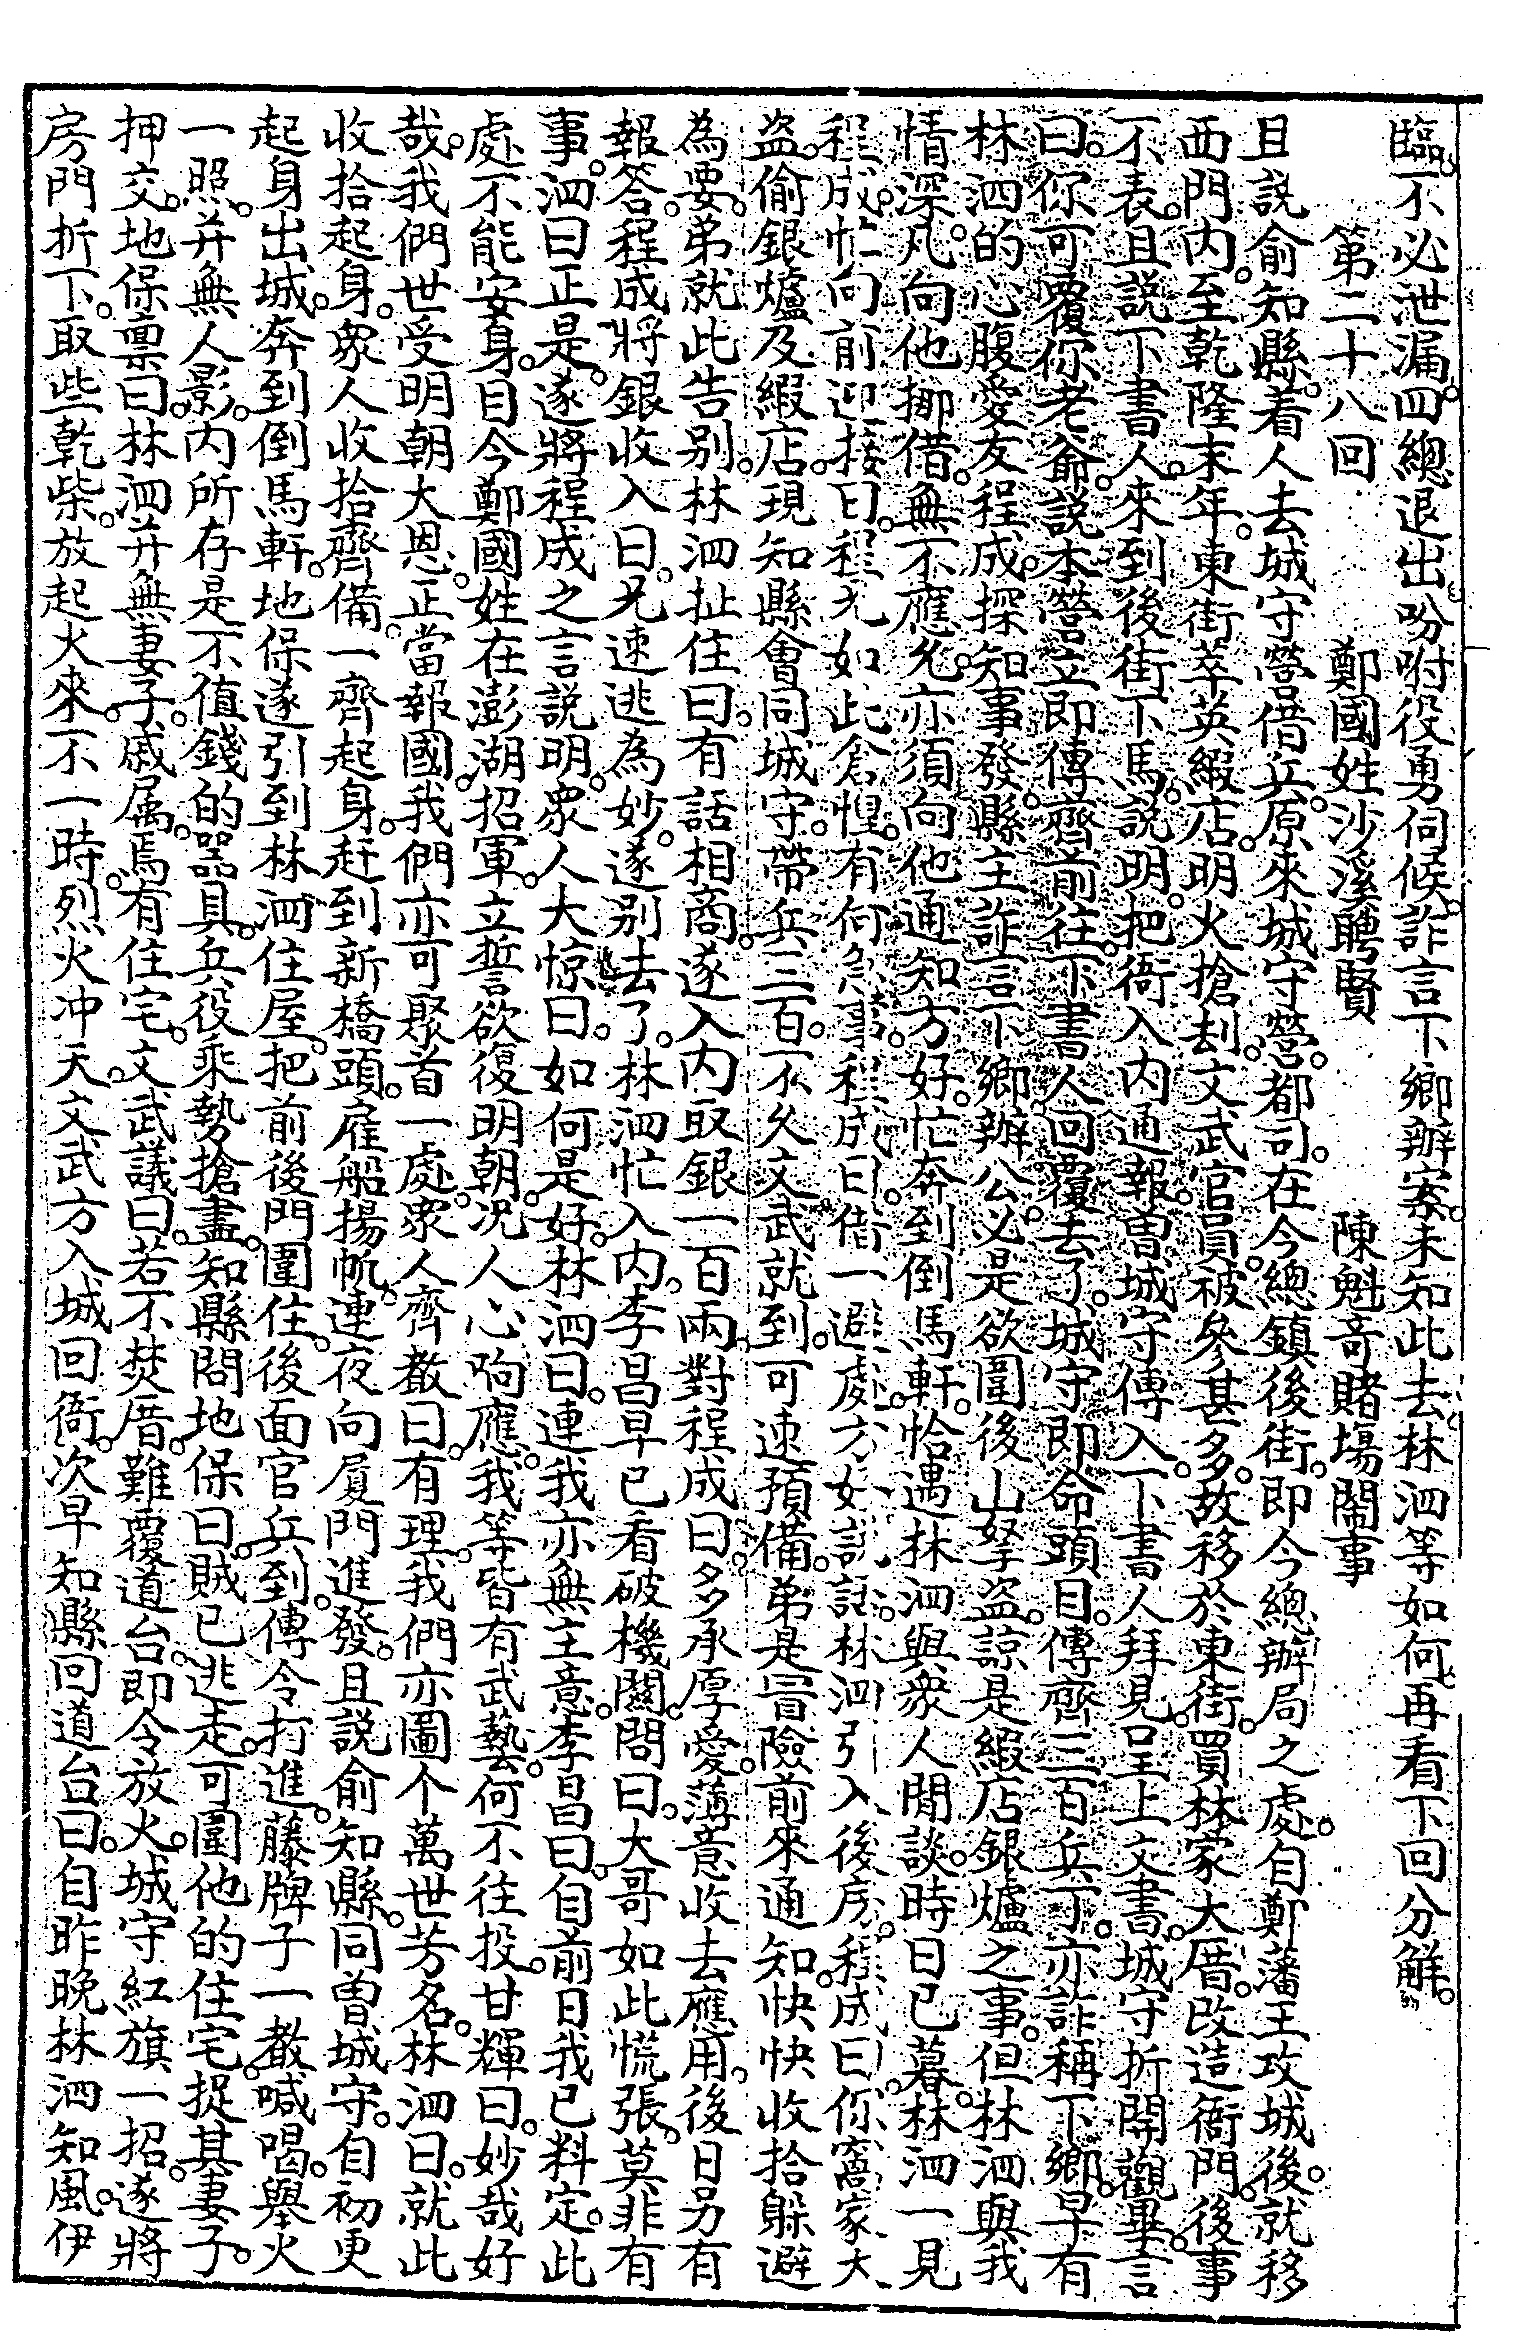 臨。不必泄漏。四總退出。吩咐役勇伺候。詐言下鄉辦案。未知此去。林泗等如何。再看下回分解。
第二十八回　鄭國姓沙溪聘賢　陳魁竒賭場鬧事
且説俞知縣。着人去城守營借兵。原來城守營。都司。在今總鎮後街。即今總辦局之處。自鄭藩王攻城後。就移
西門內。至乾隆末年。東街萃英緞店。明火搶刦。文武官員。被參甚多。故移於東街。買林家大厝。改造衙門。後事
不表。且説下書人。來到後街下馬。説明。把衙入內通報。曾城守傳入。下書人拜見。呈上文書。城守折開觀畢。言
曰。你可覆你老爺。説本營立即傳齊前往。下書人回覆去了。城守即命頭目。傳齊三百兵丁。亦詐稱下鄉。早有
林泗的心腹愛友程成。探知事發。縣主詐言下鄉辦公。必是欲圍後山拏盜。諒是緞店銀爐之事。但林泗與我
情深。凡向他挪借。無不應允。亦須向他通知方好。忙奔到倒馬軒。恰遇林泗與衆人閒談。時日已暮。林泗一見
程成。忙向前迎接曰。程兄如此倉惶。有何急事。程成曰。借一避處。方好説話。林泗引入後房。程成曰。你窩家大
盜。偷銀爐及緞店。現知縣會同城守。帶兵三百。不久文武就到。可速預備。弟是冒險前來通知。快快收拾躲避
為要。弟就此告別。林泗扯住曰。有話相商。遂入內取銀一百兩。對程成曰。多承厚愛。薄意收去應用。後日另有
報答。程成將銀收入曰。兄速逃為妙。遂別去了。林泗忙入內。李昌早已看破機關。問曰。大哥如此慌張。莫非有
事。泗曰正是。遂將程成之言説明。衆人大惊曰。如何是好。林泗曰。連我亦無主意。李昌曰。自前日我已料定。此
處不能安身。目今鄭國姓在澎湖招軍。立誓欲復明朝。况人心响應。我等皆有武藝。何不往投。甘輝曰。妙哉好
哉。我們世受明朝大恩。正當報國。我們亦可聚首一處。衆人齊教曰。有理。我們亦圖个萬世芳名。林泗曰。就此
收拾起身。衆人收拾齊備。一齊起身。赶到新橋頭。雇船揚帆。連夜向厦門進發。且説俞知縣。同曾城守。自初更
起身出城。奔到倒馬軒。地保遂引到林泗住屋。把前後門圍住。後面官兵到。傳令打進。藤牌子一教喊喝。舉火
一照。并無人影。內所存是不值錢的器具。兵役乘勢搶盡。知縣問地保曰。賊已逃走。可圍他的住宅。捉其妻子。
押交。地保禀曰。林泗并無妻子。戚属。焉有住宅。文武議曰。若不焚厝。難覆道台。即令放火。城守紅旗一招。遂將
房門折下。取些乾柴。放起火來。不一時。烈火冲天。文武方入城回衙。次早知縣回道台曰。自昨晚林泗知風。伊